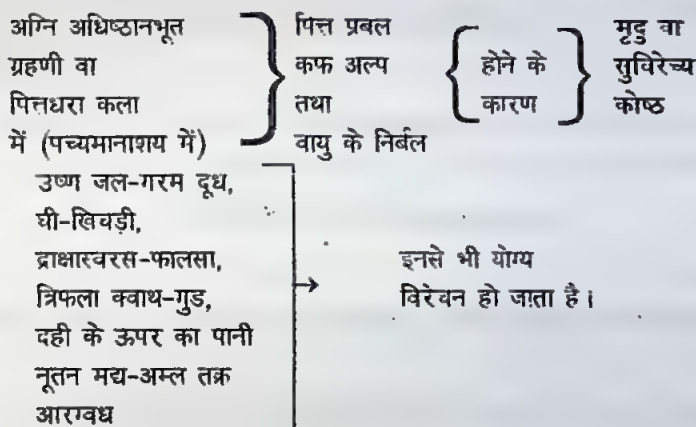 अग्नि अधिष्ठानभूत
ग्रहणी वा
पित्तधरा कला
में (पच्यमानाशय में)
पित्त प्रबल
कफ अल्प
तथा
वायु के निर्बल
होने के
कारण
मृदु वा
सुविरेच्य
कोष्ठ
उष्ण जल-गरम दूध,
घी-खिचड़ी,
द्राक्षास्वरस-फालसा,
त्रिफला क्वाथ-गुड,
दही के ऊपर का पानी
नूतन मद्य-अम्ल तक्र
आरग्वध
इनसे भी योग्य
विरेचन हो जाता है।